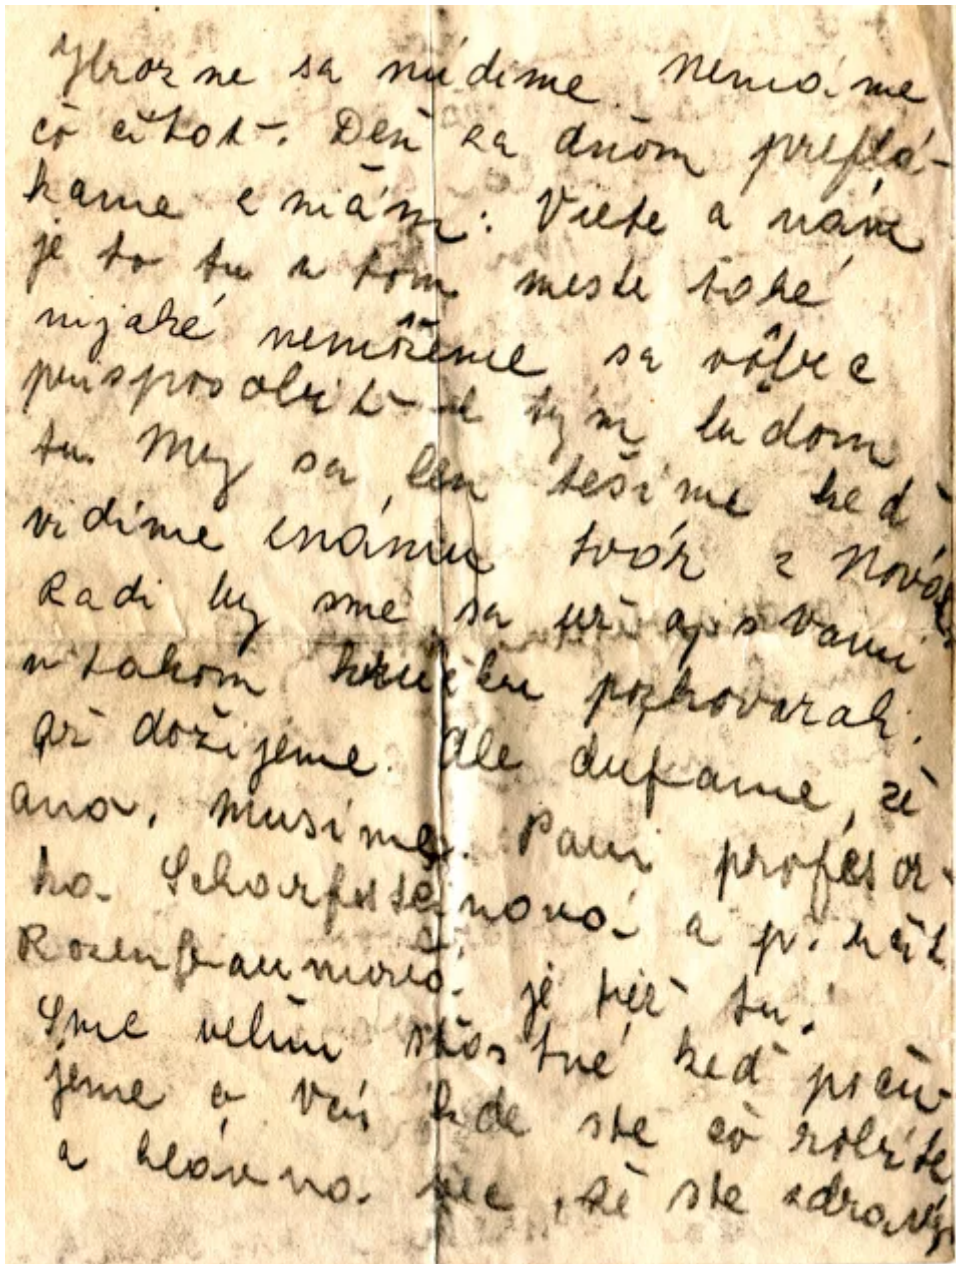 Hrozne sa nudíme nemáme
čo čítat. Deň za dňom preflá-
kame a mám: Viete a nám
je to tu v tom meste také
nijaké nemôžeme sa vôbec
prisposobit k tým ludom
tu. My sa len tešíme keď
vidíme známu tvár z Novák
Radi by sme sa už aj s Vami
v takom krúžku pozhovarali.
až dožijeme. Ale dufame, že
ano, musíme. Pani profesor-
ka Scharfsteinová a p.
Rozenbaumová je tiež tu.
Sme velmi štastné keď poču-
jeme o Vás kde ste čo robíte
a hlavna vec, že ste zdravý